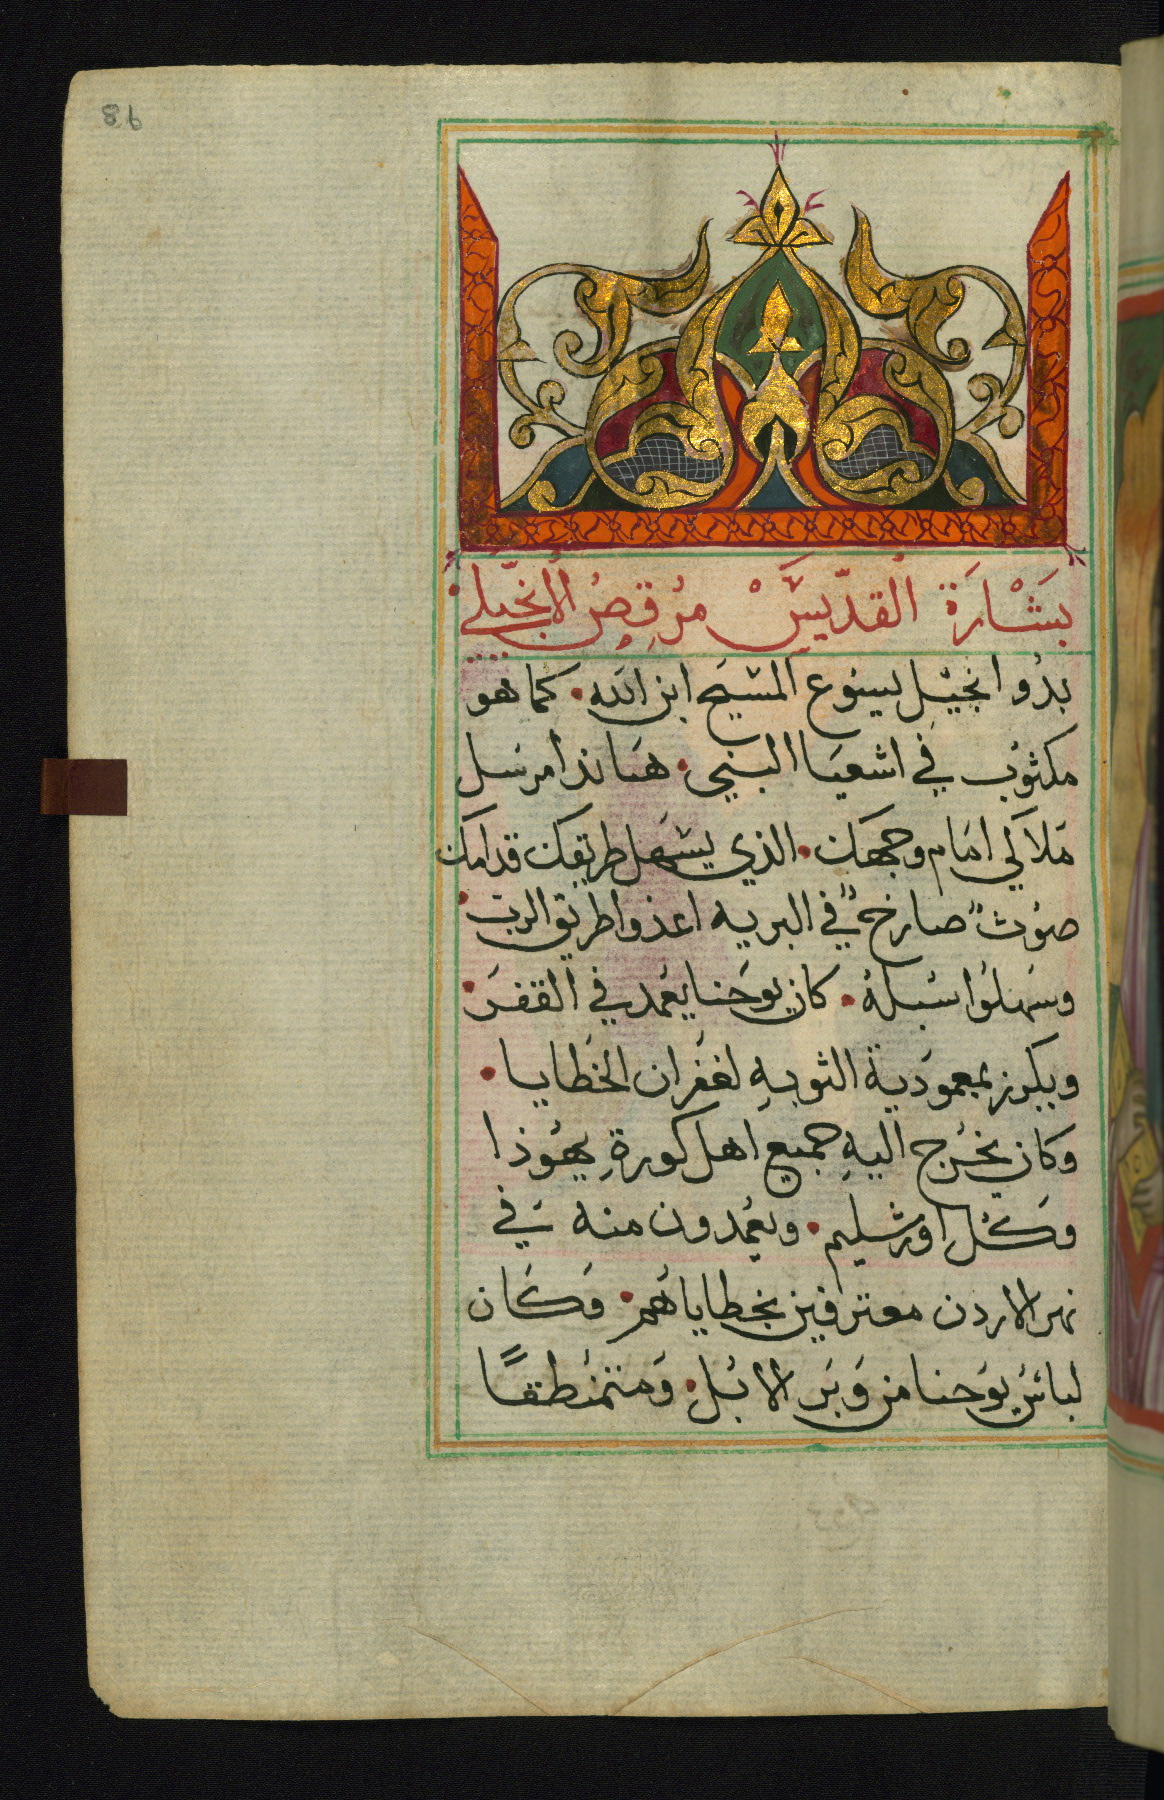 بشارة القديس مرقص الانجيلي
بدوا انجيل يسوع المسيح ابن الله. كما هو
مكثوب في اشعيا النبي. هانذا مرسل
ملاكي امام وجهك. الذي يسهل طريقك قدامك
صوث صارخ في البريه اعدوا طريق الرب
وسهلوا سبله. كان يوحنا يعمد في القفر
ويكرز بمعمودية الثوبه لغفران الخطايا.
وكان يخرج اليه جميع اهل كورة يهوذا
وكل اورشليم. ويعمدون منه في
نهر الاردن معترفين بخطاياهم. وكان
لباس يوحنا من وبر الابل. ومتمنطقا